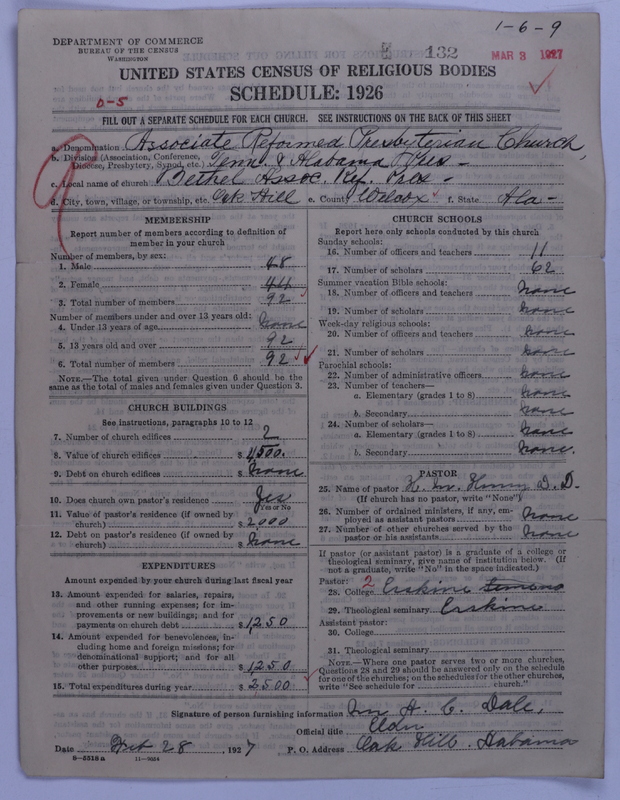 1-6-9
DEPARTMENT OF COMMERCE
BUREAU OF THE CENSUS
WASHINGTON
132
MAR 3 1927
UNITED STATES CENSUS OF RELIGIOUS BODIES
SCHEDULE: 1926
D-5
FILL OUT A SEPARATE SCHEDULE FOR EACH CHURCH. SEE INSTRUCTIONS ON THE BACK OF THIS SHEET
a. Denomination Associate Reformed Presbyterian Church,
b. Division (Association, Conference, Diocese, Presbytery, Synod, etc.) Tenn. & Alabama Pres -
c. Local name of church Bethel Assoc. Ref. Pres -
d. City, town, village, or township, etc. Oak Hill e. County Wilcox f. State Ala -
MEMBERSHIP
Report number of members according to definition of
member in your church
Number of members, by sex:
1. Male 48
2. Female 44
3. Total number of members 92
Number of members under and over 13 years old:
4. Under 13 years of age None
5. 13 years old and over 92
6. Total number of members 92
NOTE.—The total given under Question 6 should be the
same as the total of males and females given under Question 3.
CHURCH BUILDINGS
See instructions, paragraphs 10 to 12
7. Number of church edifices 2
8. Value of church edifices $ 4,500.
9. Debt on church edifices $ None
10. Does church own pastor's residence Yes
Yes or No
11. Value of pastor's residence (if owned by
church) $ 2000
12. Debt on pastor's residence (if owned by
church) $ None
EXPENDITURES
Amount expended by your church during last fiscal year
13. Amount expended for salaries, repairs,
and other running expenses; for im-
provements or new buildings; and for
payments on church debt $ 1,250
14. Amount expended for benevolences, in-
cluding home and foreign missions; for
denominational support; and for all
other purposes $ 1,250
15. Total expenditures during year $ 2500
CHURCH SCHOOLS
Report here only schools conducted by this church
Sunday schools:
16. Number of officers and teachers 11
17. Number of scholars 62
Summer vacation Bible schools:
18. Number of officers and teachers None
19. Number of scholars None
Week-day religious schools:
20. Number of officers and teachers None
21. Number of scholars None
Parochial schools:
22. Number of administrative officers None
23. Number of teachers—
a. Elementary (grades 1 to 8) None
b. Secondary None
24. Number of scholars—
a. Elementary (grades 1 to 8) None
b. Secondary None.
PASTOR
25. Name of pastor Henry D. D.
(If church has no pastor, write "None")
26. Number of ordained ministers, if any, em-
ployed as assistant pastors None
27. Number of other churches served by the
pastor or his assistants None
If pastor (or assistant pastor) is a graduate of a college or
theological seminary, give name of institution below. (If
not a graduate, write "No" in the space indicated.)
Pastor: 2
28. College Erskine
29. Theological seminary Erskine
Assistant pastor:
30. College
31. Theological seminary
NOTE.—Where one pastor serves two or more churches,
Questions 28 and 29 should be answered only on the schedule
for one of the churches; on the schedules for the other churches,
write "See schedule for church."
Signature of person furnishing information H. C. Dale,
Official title Elder
Date Feb 28, 1927 P. O. Address Oak Hill. Alabama
8-5518 a 11-9024